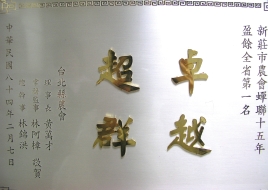 新莊市農會蟬聯十五年
盈餘全省第一名
卓越
超群
台北縣農會
理事長 黃萬才
常務監事 林阿樟 敬賀
總幹事 林錦洪
中華民國八十四年二月七日